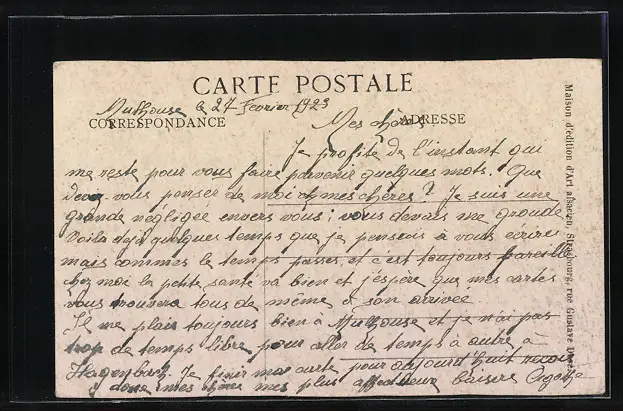 CARTE POSTALE
Mulhouse le 27 Fevrier 1923
CORRESPONDANCE
ADRESSE
Mes chères
Je profite de l'instant qui
me reste pour vous faire parvenir quelques mots. Que
devez vous penser de moi oh mes chères? Je suis une
grande négligée envers vous; vous devais me gronder
Voila déjà quelques temps que je pensais à vous ecrire
mais commes le temps passes et c'est toujours pareille
chez moi la petite santé va bien et j'espère que mes cartes
vous trouvera tous de même à son arrivee
Je me plair toujours bien à Mulhouse et je n'ai pas
trop de temps libre pour aller de temps à autre à
Hagenbach. Je finir ma carte pour aujourd'huit
donne mes chères mes plus affectueux baisers
Maison d'édition d'Art alsacien, Strasbourg, rue Gustave